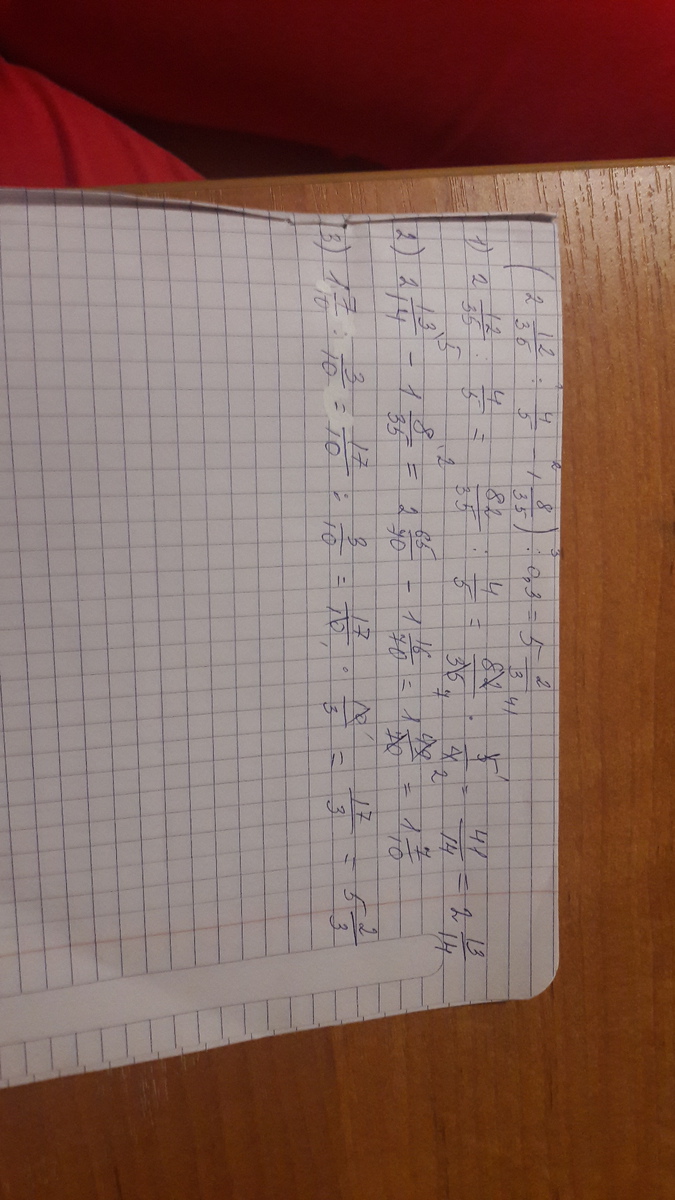 (2 12/35 : 4/5 - 1 8/35) : 0,3 = 5 2/3
1) 2 12/35 : 4/5 = 82/35 : 4/5 = 82/35 · 5/4 = 41/14 = 2 13/14
2) 2 13/14 - 1 8/35 = 2 65/70 - 1 16/70 = 1 49/70 = 1 7/10
3) 1 7/10 : 3/10 = 17/10 : 3/10 = 17/10 · 10/3 = 17/3 = 5 2/3